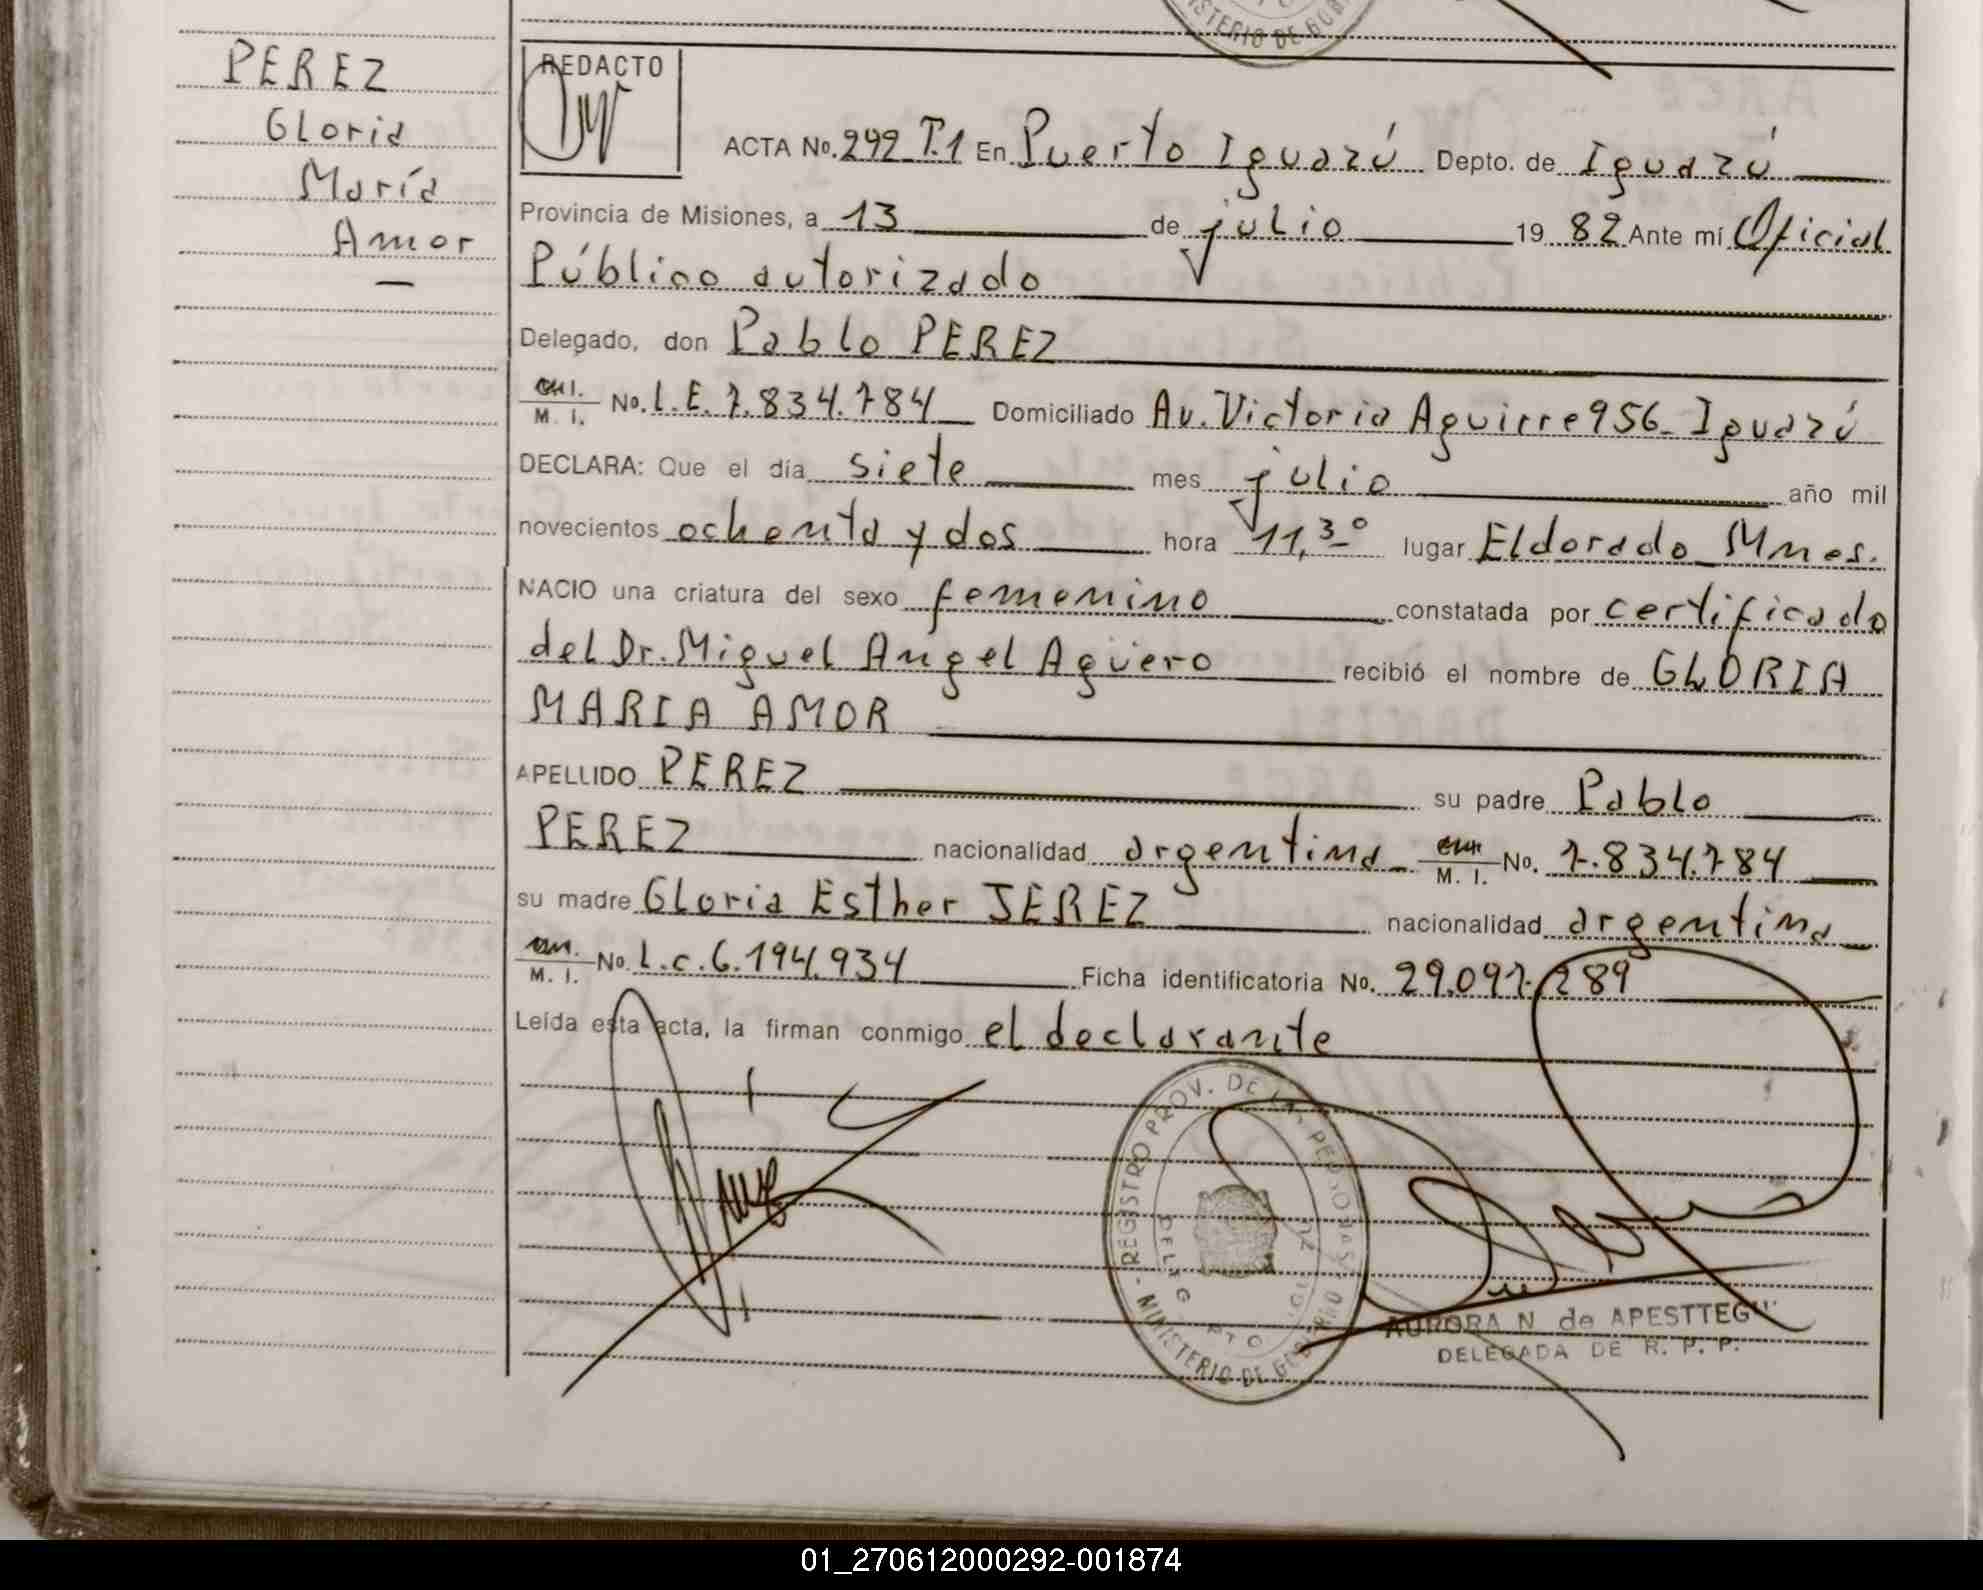 PEREZ
Gloria
María
Amor
STERIO DE GOB
REDACTO
ACTA No. 292 T.1 En Puerto Iguazú Depto. de Iguazú
Provincia de Misiones, a 13 de julio 19 82 Ante mí Oficial
Público autorizado
Delegado, don Pablo PEREZ
M. I. No. L.E. 7.834.784 Domiciliado Av. Victoria Aguirre 956_ Iguazú
DECLARA: Que el día siete mes julio año mil
novecientos ochenta y dos hora 11,30 lugar Eldorado_ Mnes.
NACIO una criatura del sexo femenino constatada por certificado
del Dr. Miguel Angel Agüero recibió el nombre de GLORIA
MARIA AMOR
APELLIDO PEREZ su padre Pablo
PEREZ nacionalidad argentina M. I. No. 7.834.784
su madre Gloria Esther JEREZ nacionalidad argentina
M. I. No. L.C. 6.194.934 Ficha identificatoria No. 29.097.289
Leída esta acta, la firman conmigo el declarante
REGISTRO PROV. DE LAS PERSONAS - MINISTERIO DE GOBIERNO
AURORA N de APESTTEGUI
DELEGADA DE R. P. P.
01_270612000292-001874